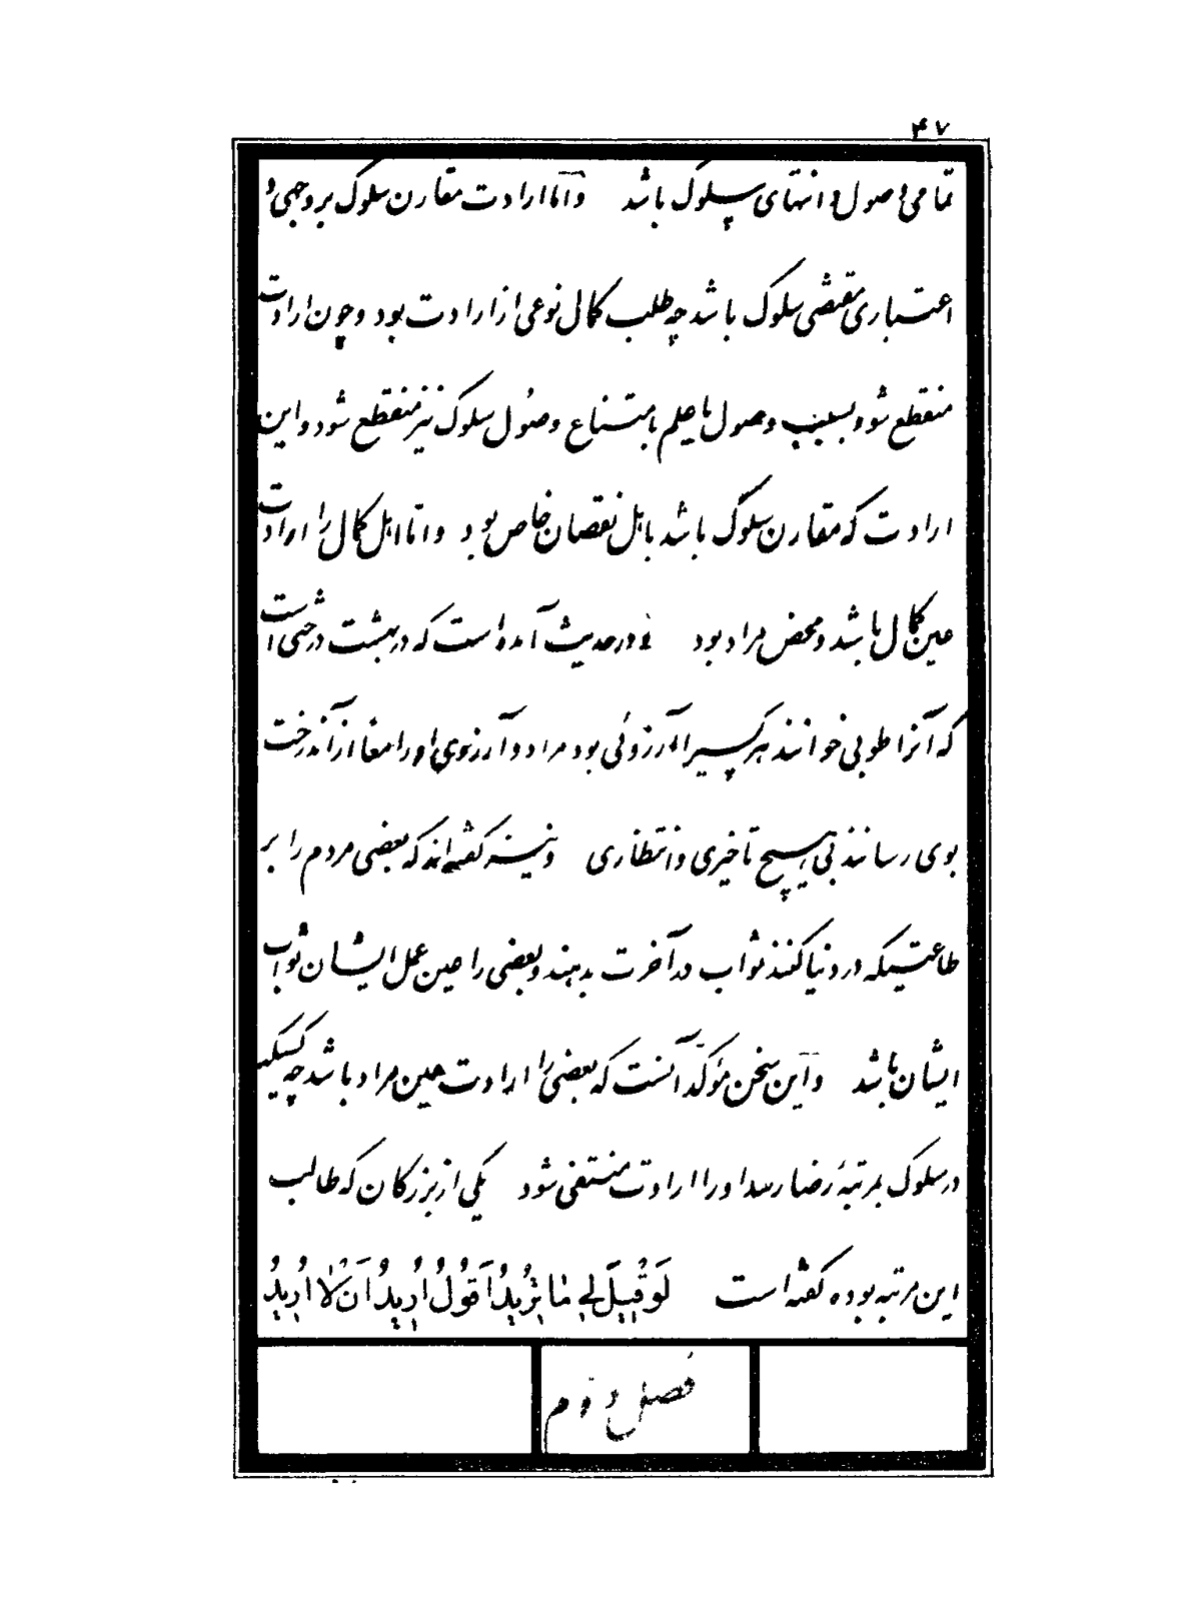 ۴۷
تمامی وصول و انتهای سلوک باشد و اما ارادت مقارن سلوک بر وجهی و
اعتباری مقتضی سلوک باشد چه طلب کمال نوعی از ارادت بود و چون ارادت
منقطع شود بسبب وصول یا علم بامتناع وصول سلوک نیز منقطع شود و این
ارادت که مقارن سلوک باشد باهل نقصان خاص بود و اما اهل کمال را ارادت
عین کمال باشد و محض مراد بود و در حدیث آمده است که در بهشت درختی است
که آنرا طوبی خوانند هر کسیرا آرزوئی بود مراد و آرزوی او را مغا از آندرخت
بوی رسانند بی هیچ تاخیری و انتظاری و نیز گفته‌اند که بعضی مردم را بر
طاعتیکه در دنیا کنند ثواب در آخرت بدهند و بعضی را عین عمل ایشان ثواب
ایشان باشد و این سخن مؤکد آنست که بعضی را ارادت عین مراد باشد چه کسیکه
در سلوک بمرتبهٔ رضا رسد او را ارادت منتفی شود یکی از بزرگان که طالب
این مرتبه بوده گفته است لَو قِیلَ لِی مَا تُرِیدُ اَقُولُ اُرِیدُ اَنْ لَا اُرِیدُ
فصل دوم